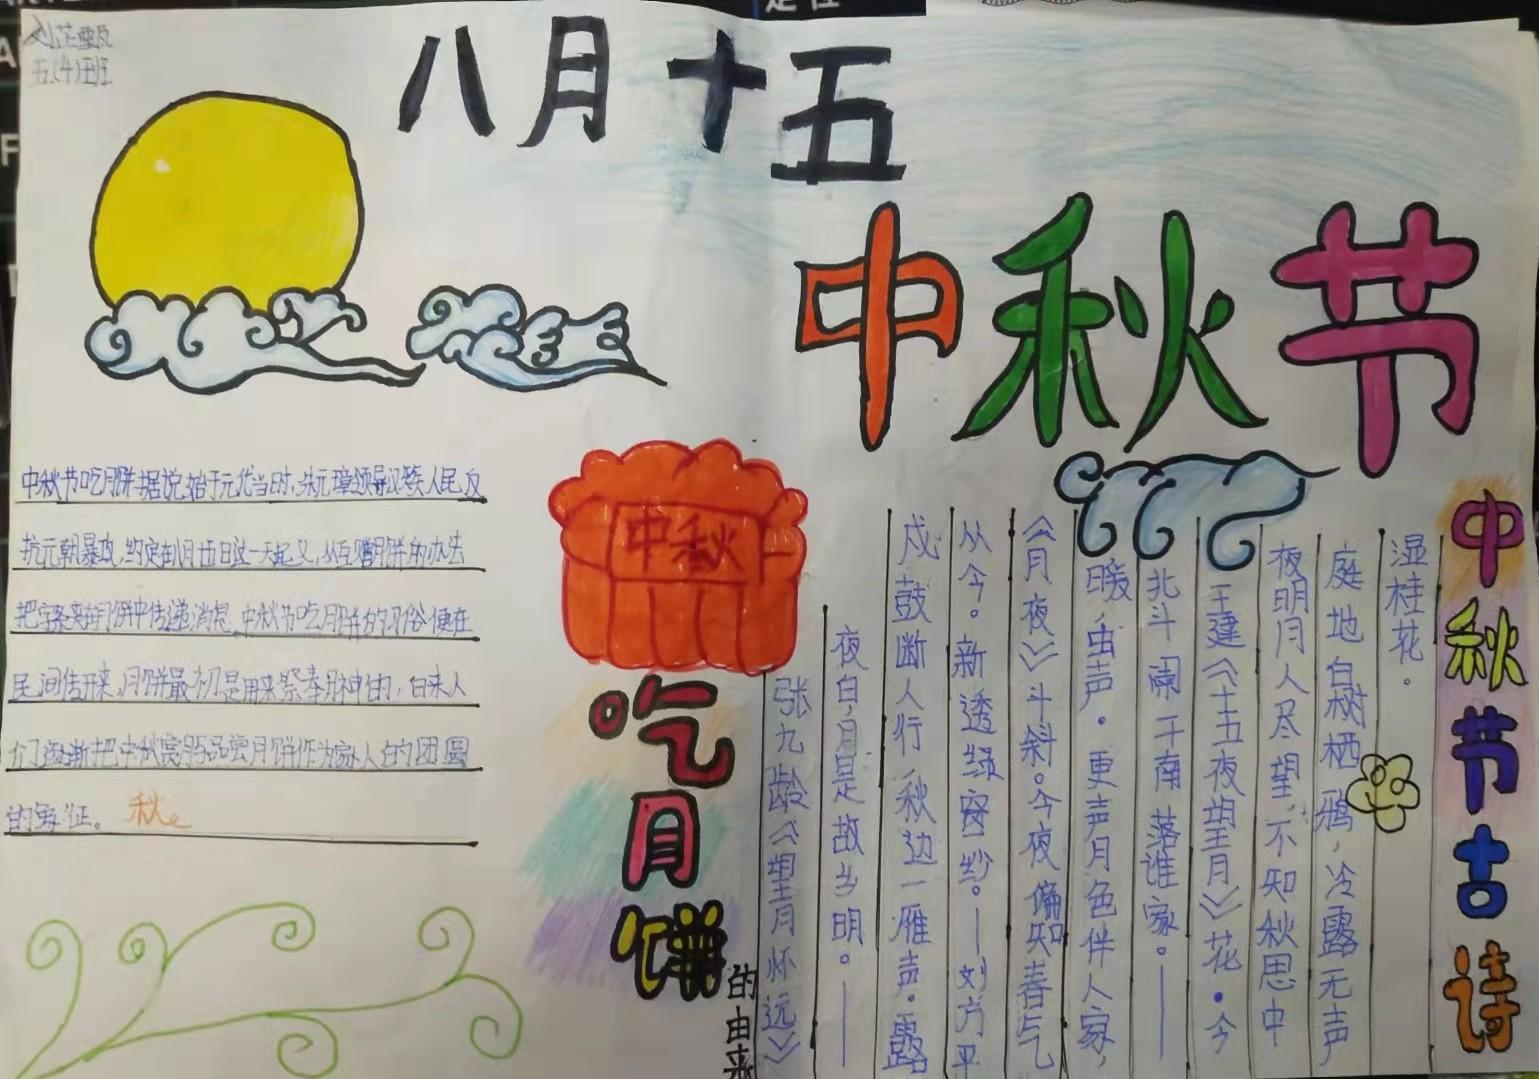 五(4)班
八月十五
中秋节
中秋节吃月饼据说始于元代当时,朱元璋领导汉族人民反
抗元朝暴政,约定在八月十五日这一天起义,以互赠月饼的办法
把字条夹在月饼中传递消息.中秋节吃月饼的习俗便在
民间传开来,月饼最初是用来祭奉月神的,后来人
们逐渐把中秋赏月与品尝月饼作为家人的团圆
的象征。 秋
中秋
吃月饼
的由来
中秋节古诗
湿桂花。
庭地白树栖鸦,冷露无声
夜明月人尽望,不知秋思中
王建《十五夜望月》花·今
北斗阑干南落谁家。——
暖,虫声。更声月色伴人家,
《月夜》斗斜。今夜偏知春气
从今。新透绿窗纱。——刘方平
戍鼓断人行秋边一雁声.露
夜白,月是故乡明。——
张九龄《望月怀远》